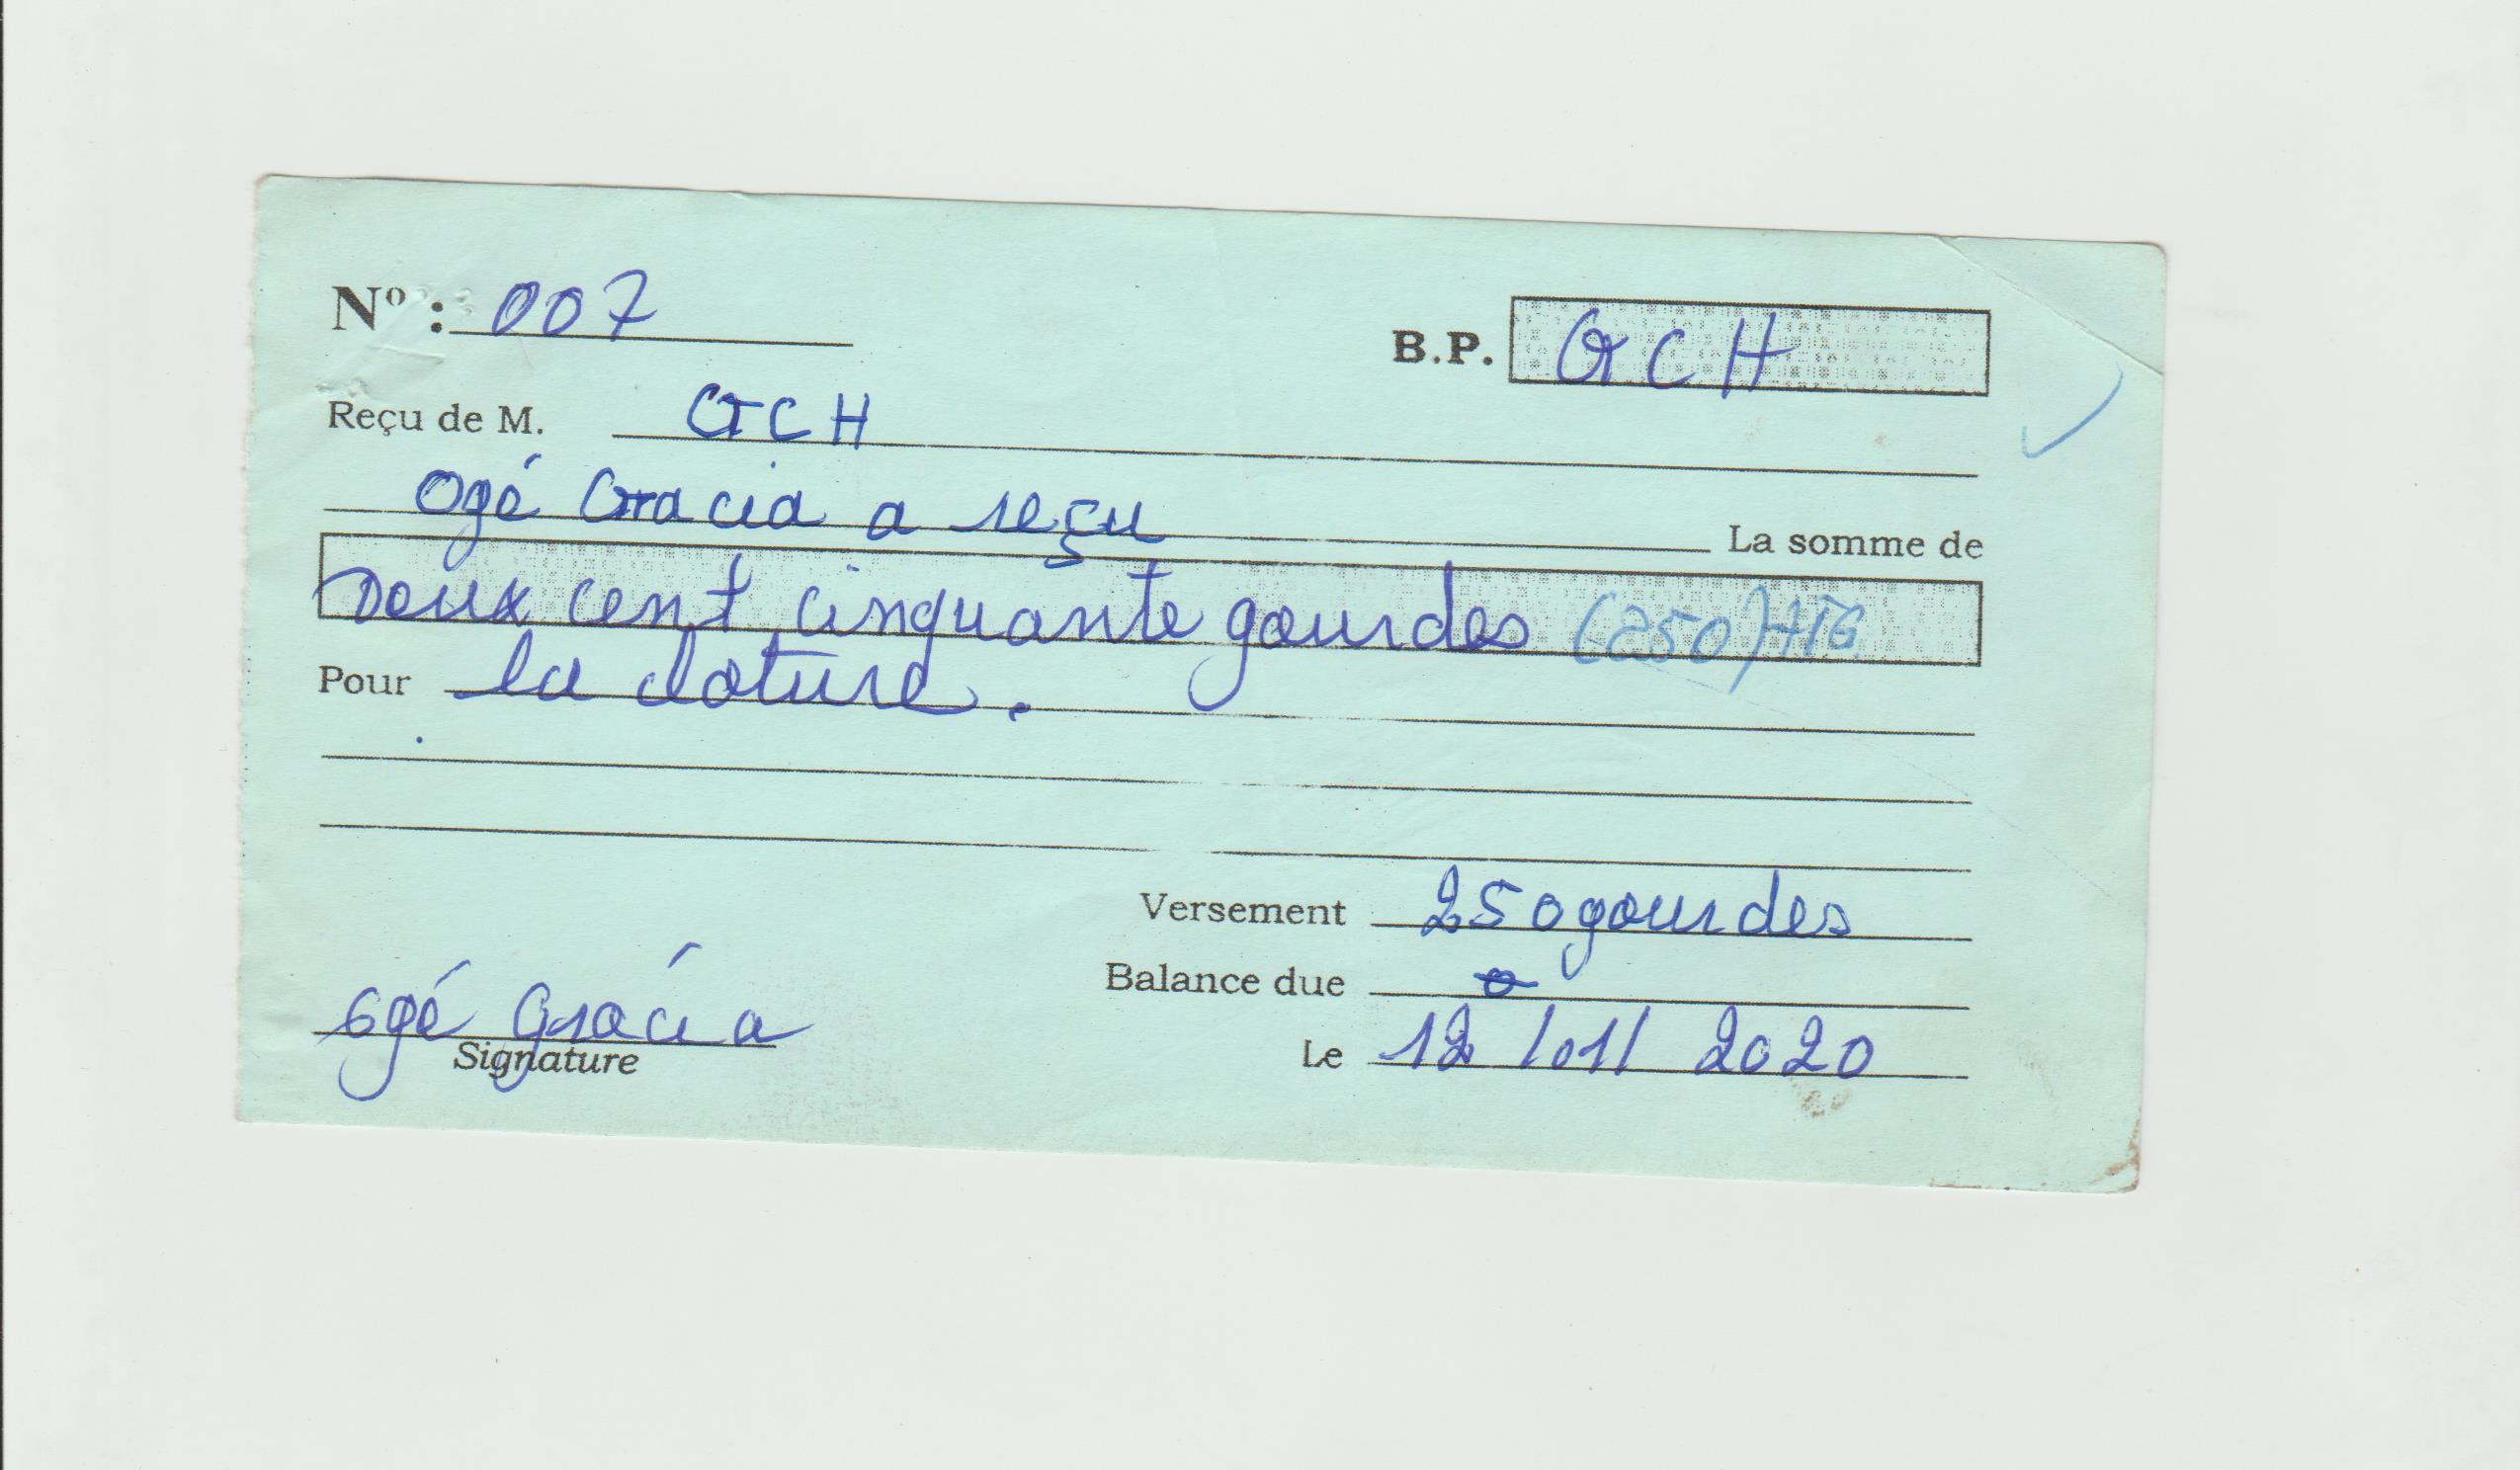 Nº : 007
B.P. GCH
Reçu de M. GCH
Ogé Gracia a reçu La somme de
Deux cent cinquante gourdes (250) HTG
Pour la cloture.
Versement 250 gourdes
Balance due 0
Ogé Gracia
Signature
Le 12/01/2020